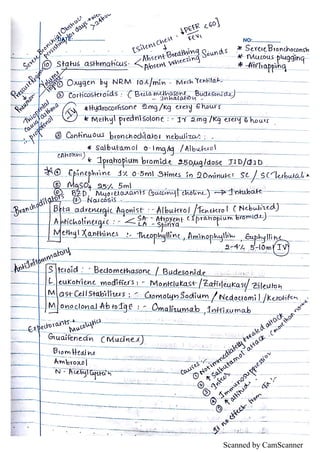 Severe Bronchial Obstruc
[PEFR < 60]
FEV1
NO:
[Silent chest]
Absent Breathing Sounds
Absent Wheezing
* Severe Bronchoconst
* Mucous plugging
* Airtrapping
10 Status asthmaticus:
① Oxygen by NRM 10L/min - Mech Ventilat
② Corticosteroids: (Beclomethasone, Budesonide)
Inhalation
IV
* Hydrocortisone 2mg/kg every 6 hours
* Methyl prednisolone :- IV 2mg/kg every 6 hours
③ Continuous bronchodilator nebulizer :-
* Salbutamol 0.1mg/kg / Albuterol
* Ipratropium bromide 250µg/dose
④ Epinephrine 1% 0.5ml 3times in 20minutes SC / SC Terbutal
⑤ MgSO4 25% 5ml
⑥ BZD, Myorelaxants (succinyl choline) → Intubate
⑦ Narcosis
Bronchodilators
Beta adrenergic Agonist - Albuterol / (Nebulized)
Anticholinergic :- SA - Atrovent (Ipratropium bromide)
LA - Spiriva
Methyl Xanthines :- Theophylline, Aminophyllin, Euphylline
2-4% 5-10ml IV
Anti Inflammatory
Steroid :- Beclomethasone / Budesonide
Leukotriene modifiers :- Montelukast / Zafirleukast / Zileuton
Mast Cell Stabilizers :- Cromolyn Sodium / Nedocromil / Ketotifen
Monoclonal Abs Ige :- Omalizumab, Infliximab
Expectorants + Mucolytics
Guaifenecin (Mucinex)
Bromhexine
Ambroxol
N-Acetyl cystin
Causes :-
① Not immediately treated attack
② ↑ Salbutamol
③ Infec
④ Immunosuppression
⑤ ↑ altitude
Scanned by CamScanner